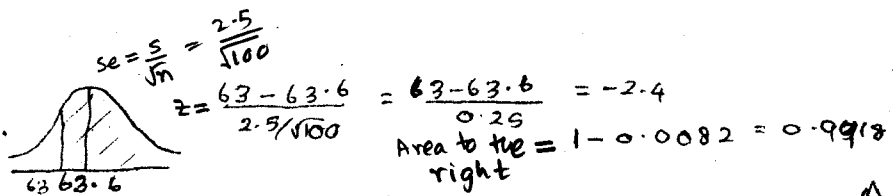 se = s/√n = 2.5/√100
z = 63 - 63.6 / 2.5/√100 = 63 - 63.6 / 0.25 = -2.4
Area to the right = 1 - 0.0082 = 0.9918
63 63.6